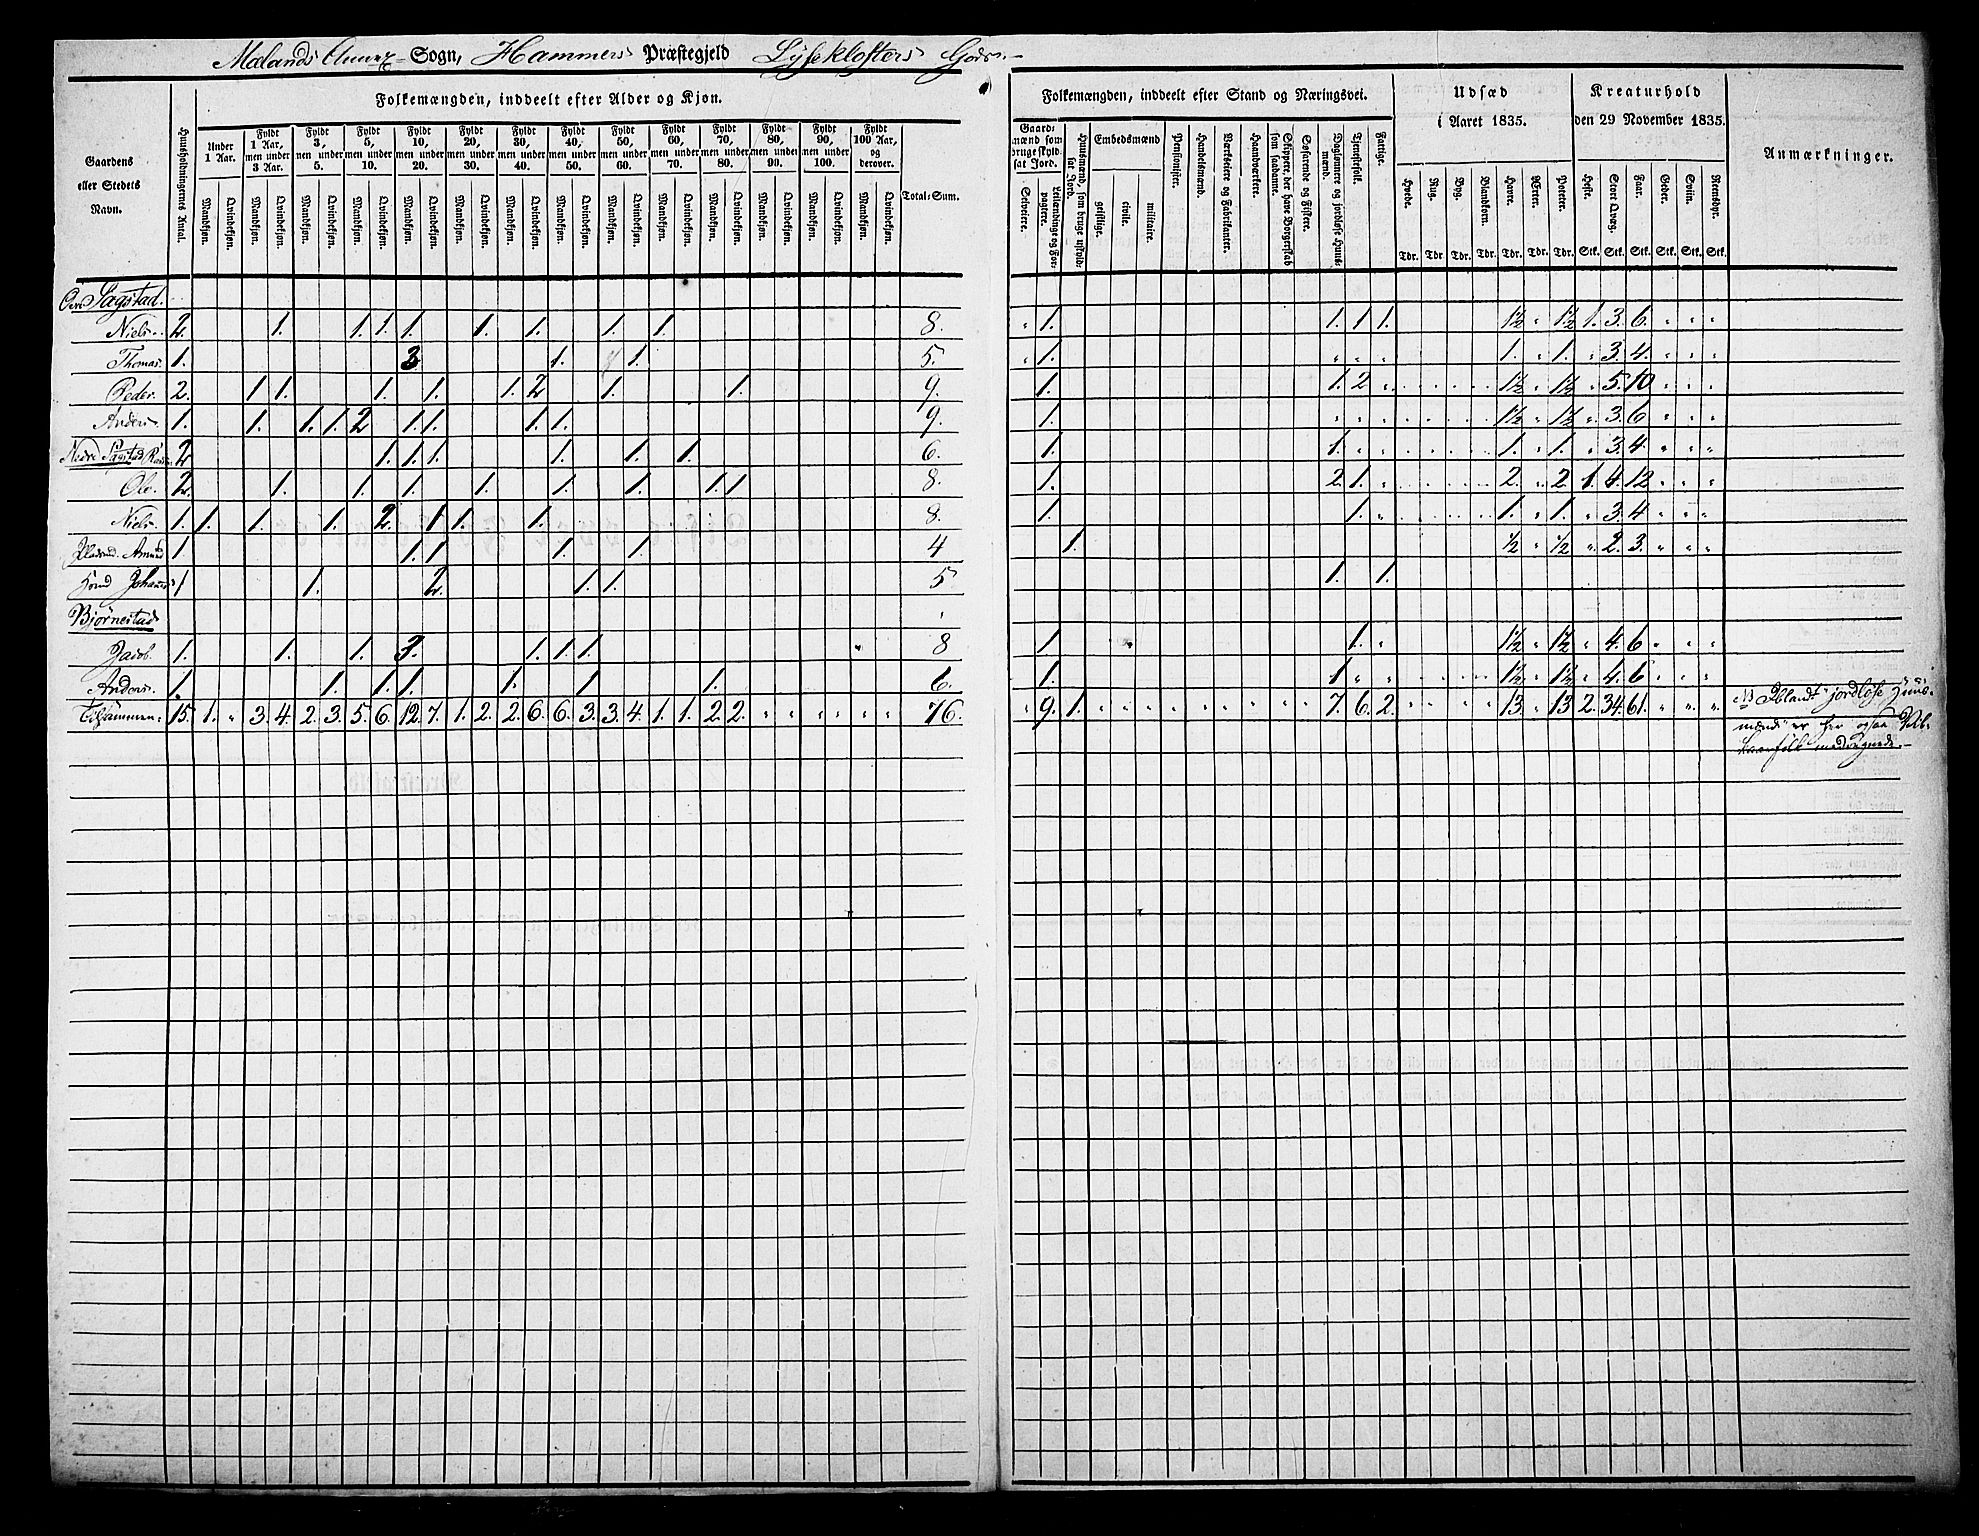 Mælands Annex Sogn, Hammers Præstegjeld Lysekloster Gods
Folkemængden, inddeelt efter Alder og Kjøn.
Folkemængden, inddeelt efter Stand og Næringsvei.
Udsæd i Aaret 1835.
Kreaturhold den 29 November 1835.
Anmærkninger.
Gaardens eller Stedets Navn.
Huusholdningernes Antal.
Under 1 Aar.
Fyldt 1 Aar, men under 3 Aar.
Fyldt 3, men under 5.
Fyldt 5, men under 10.
Fyldt 10, men under 20.
Fyldt 20, men under 30.
Fyldt 30, men under 40.
Fyldt 40, men under 50.
Fyldt 50, men under 60.
Fyldt 60, men under 70.
Fyldt 70, men under 80.
Fyldt 80, men under 90.
Fyldt 90, men under 100.
Fyldt 100 Aar, og derover.
Mandkjøn. Qvindekjøn. Mandkjøn. Qvindekjøn. Mandkjøn. Qvindekjøn. Mandkjøn. Qvindekjøn. Mandkjøn. Qvindekjøn. Mandkjøn. Qvindekjøn. Mandkjøn. Qvindekjøn. Mandkjøn. Qvindekjøn. Mandkjøn. Qvindekjøn. Mandkjøn. Qvindekjøn. Mandkjøn. Qvindekjøn. Mandkjøn. Qvindekjøn. Mandkjøn. Qvindekjøn. Mandkjøn. Qvindekjøn.
Total-Sum.
Gaardmænd som bruge skyldsat Jord.
Selveiere.
Leilændinge og Forpagtere.
Huusmænd, som bruge uskyldsat Jord.
Embedsmænd
geistlige.
civile.
militaire.
Pensionister.
Handelsmænd.
Værkseiere og Fabrikanter.
Haandværkere.
Skippere, der have Borgerskab som saadanne.
Søfarende og Fiskere.
Daglønnere og jordløse Huusmænd.
Tjenestefolk.
Fattige.
Hvede. Rug. Byg. Blandkorn. Havre. Erter. Poteter.
Tdr. Tdr. Tdr. Tdr. Tdr. Tdr. Tdr.
Heste. Stort Qvæg. Faar. Geder. Sviin. Reensdyr.
Stk. Stk. Stk. Stk. Stk. Stk.
Øvre Sagstad.
Niels. 2. 1. 1. 1. 1. 1. 1. 1. 1. 8. " 1. 1. 1. 1. 1½ " 1½ 1. 3. 6. " " "
Thomas. 1. 3 1. 1. 5. " 1. " " " 1. " 1. " 3. 4. " " "
Peder. 2. 1. 1. 1. 1. 1. 2 1. 1. 9. 1. 1. 2 " 1½ " 1½ " 5. 10 " " "
Anders. 1. 1. 1. 1. 2 1. 1. 1. 1. 9. 1. " " " 1½ " 1½ " 3. 6 " " "
Nedre Sagstad 2 1. 1. 1. 1. 1. 1. 6. 1. 1. " " 1. " 1. " 3. 4 " " "
Ole. 2. 1. 1. 1. 1. 1. 1. 1. 1. 8. 1. 2 1. " 2. " 2 1. 4. 12 " " "
Niels. 1. 1. 1. 1. 2. 1 1. 1. 8. 1. 1. " 1. " 1. " 3. 4 " " "
1. 1. 1. 1. 1. 4 1. ½ " ½ " 2. 3. " " "
1 1. 2. 1. 1. 5 1. 1.
Bjørnestad
Jacob. 1. 1. 1. 3. 1. 1. 1. 8 1. 1. " 1½ " 1½ " 4. 6 " " "
Anders. 1. 1. 1. 1. 1. 1. 1. 6. 1. 1 " " 1½ " 1½ " 4. 6 " " "
Tilsammen: 15. 1. " 3. 4. 2. 3. 5. 6. 12. 7. 1. 2. 2. 6. 6. 3. 3. 4. 1. 1. 2. 2. " " " " " " 76. " 9. 1. " " " " " " " " " 7. 6. 2. " " " " 13. " 13 2. 34. 61. " " "
NB Iblandt "jordløse Huus-
mænd" er her ogsaa
medregnede.